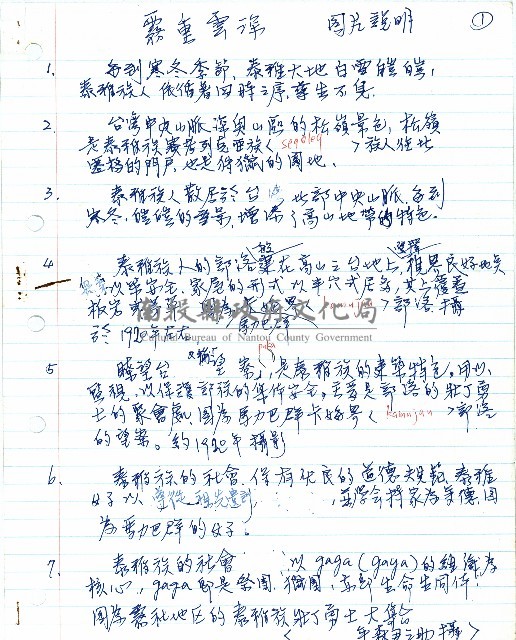 霧重雲深 图片說明 ①
1. 每到寒冬季節,泰雅大地白雪皚皚,
泰雅族人依循着四時之序,孳生不息。
2. 台灣中央山脈深奧山區的松嶺景色,松嶺
是泰雅族賽考列克亞族< segoleq >族人往北
遷移的門戶,也是狩獵的園地。
3. 泰雅族人散居於台 北部中央山脈,每到
寒冬,皚皚的雪景,增添了高山地帶的特色。
4 泰雅族人的部落 在高山台地上,選擇視界良好地點
以策安全,家屋的形式以半穴式居多,其上覆蓋
板岩 部落 攝
於1920年左右 馬力巴群
南投縣政府文化局
Cultural Bureau of Nantou County Government
5 瞭望台 望寮,是泰雅族的建築特色,用以
監視,以保護部族的集体安全,主要是部落的壯丁勇
士的聚會處,图為馬力巴群卡姆界< kamujau >部落
的望寮。約1920年攝影
6. 泰雅族的社會,保有 民的道德規範,泰雅
女子以 並學會持家為美德,图
為馬力巴群的女子。
7. 泰雅族的社會 以gaga(gaya)的組織為
核心,gaga即是祭團,獵團,亦即生命共同体,
图為霧社地區的泰雅族壯丁勇士大集合
< 攝>